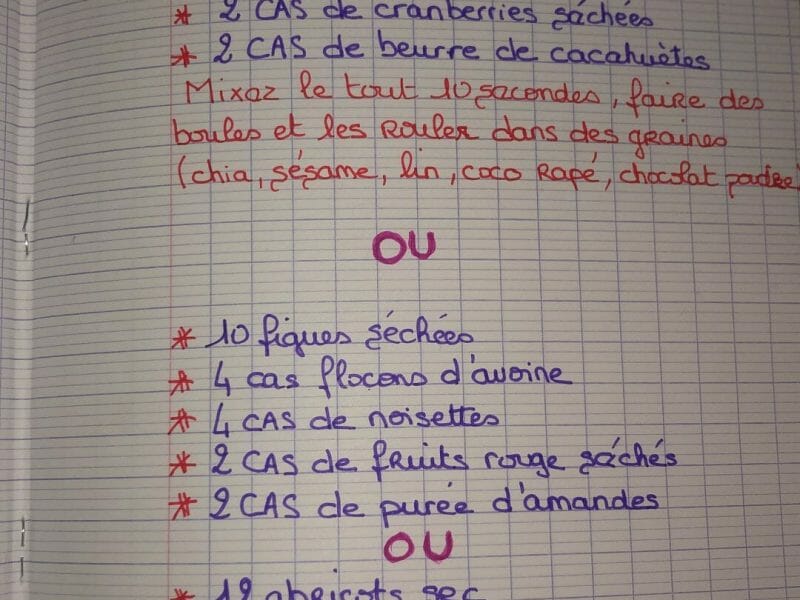 * 2 CAS de cranberries séchées
* 2 CAS de beurre de cacahuètes
Mixez le tout 10 secondes, faire des
boules et les rouler dans des graines
(chia, sésame, lin, coco Rapé, chocolat poudre)
OU
* 10 figues séchées
* 4 cas flocons d'avoine
* 4 CAS de noisettes
* 2 CAS de fruits rouge séchés
* 2 CAS de purée d'amandes
OU
* 12 abricots sec